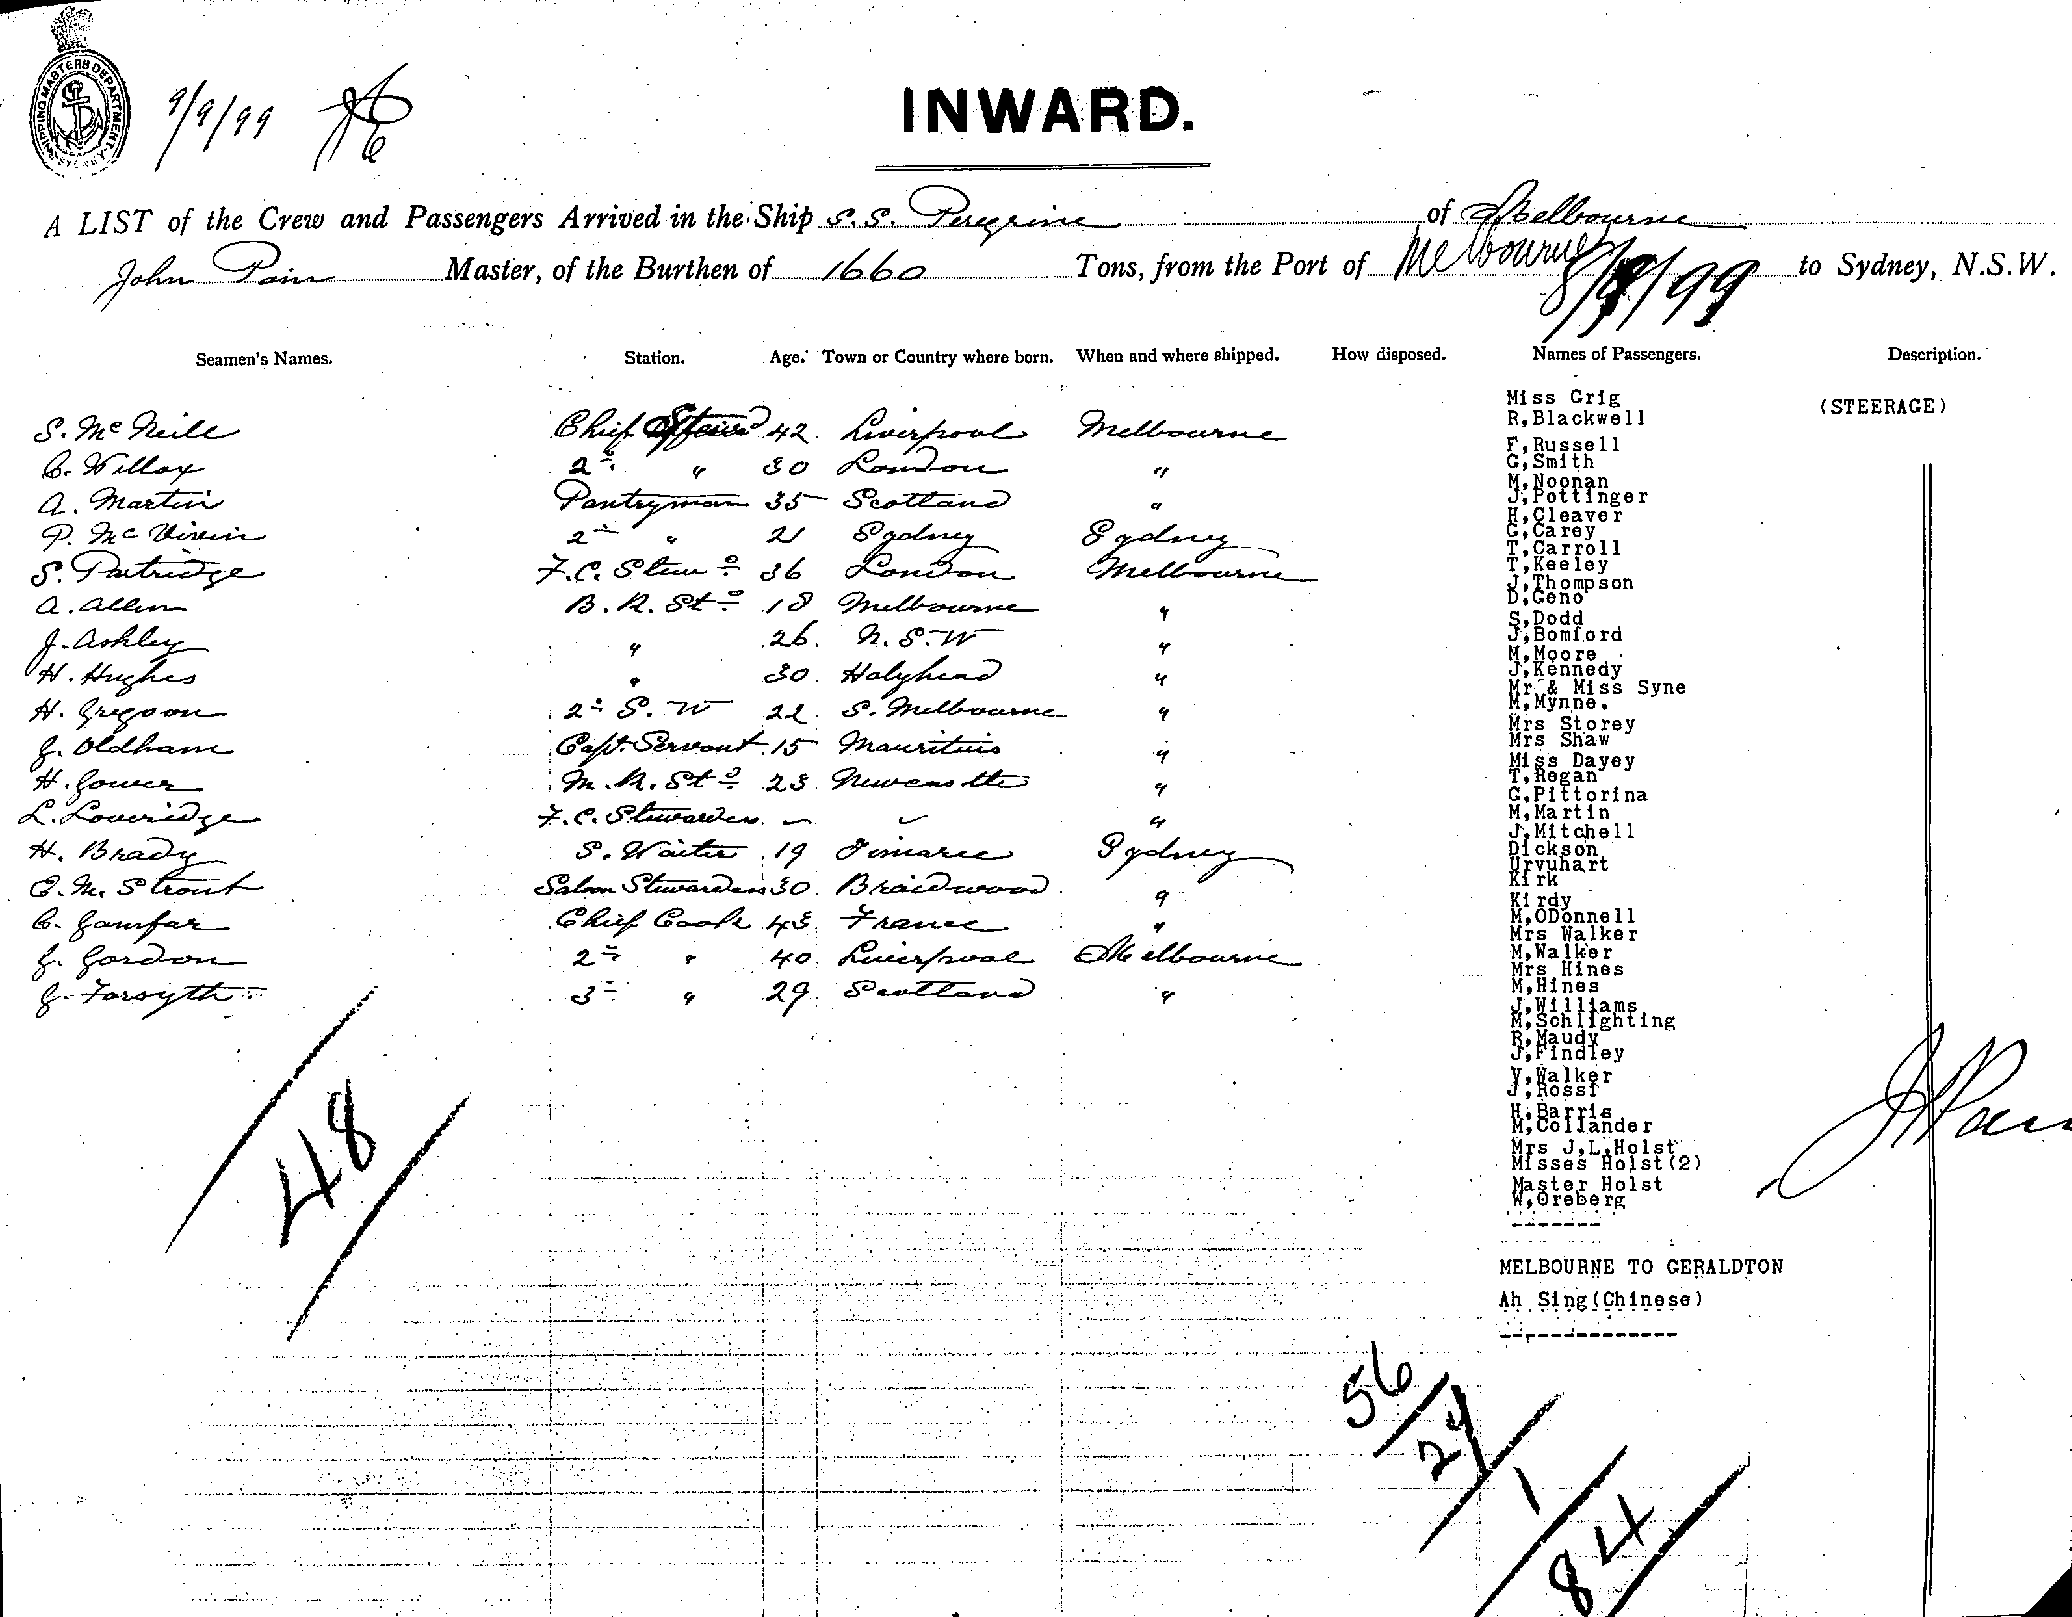 SHIPPING MASTERS DEPARTMENT
9/9/99
INWARD.
A LIST of the Crew and Passengers Arrived in the Ship S.S. Peregrine of Melbourne
John Pain Master, of the Burthen of 1660 Tons, from the Port of Melbourne 8/9/99 to Sydney, N.S.W.
Seamen's Names. Station. Age. Town or Country where born. When and where shipped. How disposed. Names of Passengers. Description.
S. McNeill Chief Steward 42. Liverpool Melbourne
C. Willox 2nd " 30 London "
A. Martin Pantryman 35 Scotland "
P. McVivin 2nd " 21 Sydney Sydney
S. Partridge F.C. Stew d 36 London Melbourne
A. Allen B.R. St d 18 Melbourne "
J. Ashley " 26. N.S.W "
H. Hughes " 30. Holyhead "
H. Gregson 2nd S.W 22. S. Melbourne "
J. Oldham Capt. Servant 15 Mauritius "
H. Gower M.R. St d 23 Newcastle "
L. Loveridge F.C. Stewardess — — "
H. Brady S. Waiter 19 Sydney
E. M. Strout Saloon Stewardess 30. Braidwood "
C. Chief Cook 43 France "
J. Gordon 2nd " 40. Liverpool Melbourne
J. Forsyth 3rd " 29. Scotland "
48
Miss Grig (STEERAGE)
R,Blackwell
F,Russell
G,Smith
M,Noonan
J,Pottinger
H,Cleaver
G,Carey
T,Carroll
T,Keeley
J,Thompson
D,Geno
S,Dodd
J,Bomford
M,Moore
J,Kennedy
Mr & Miss Syne
M,Mynne.
Mrs Storey
Mrs Shaw
Miss Dayey
T,Regan
G,Pittorina
M,Martin
J,Mitchell
Dickson
Urvuhart
Kirk
Kirdy
M,ODonnell
Mrs Walker
M,Walker
Mrs Hines
M,Hines
J,Williams
M,Schlighting
R,Maudy
J,Findley
V,Walker
J,Rossi
H,Barris
M,Collander
Mrs J,L,Holst
Misses Holst(2)
Master Holst
W,Oreberg
MELBOURNE TO GERALDTON
Ah Sing(Chinese)
J Pain
56
27
1
84